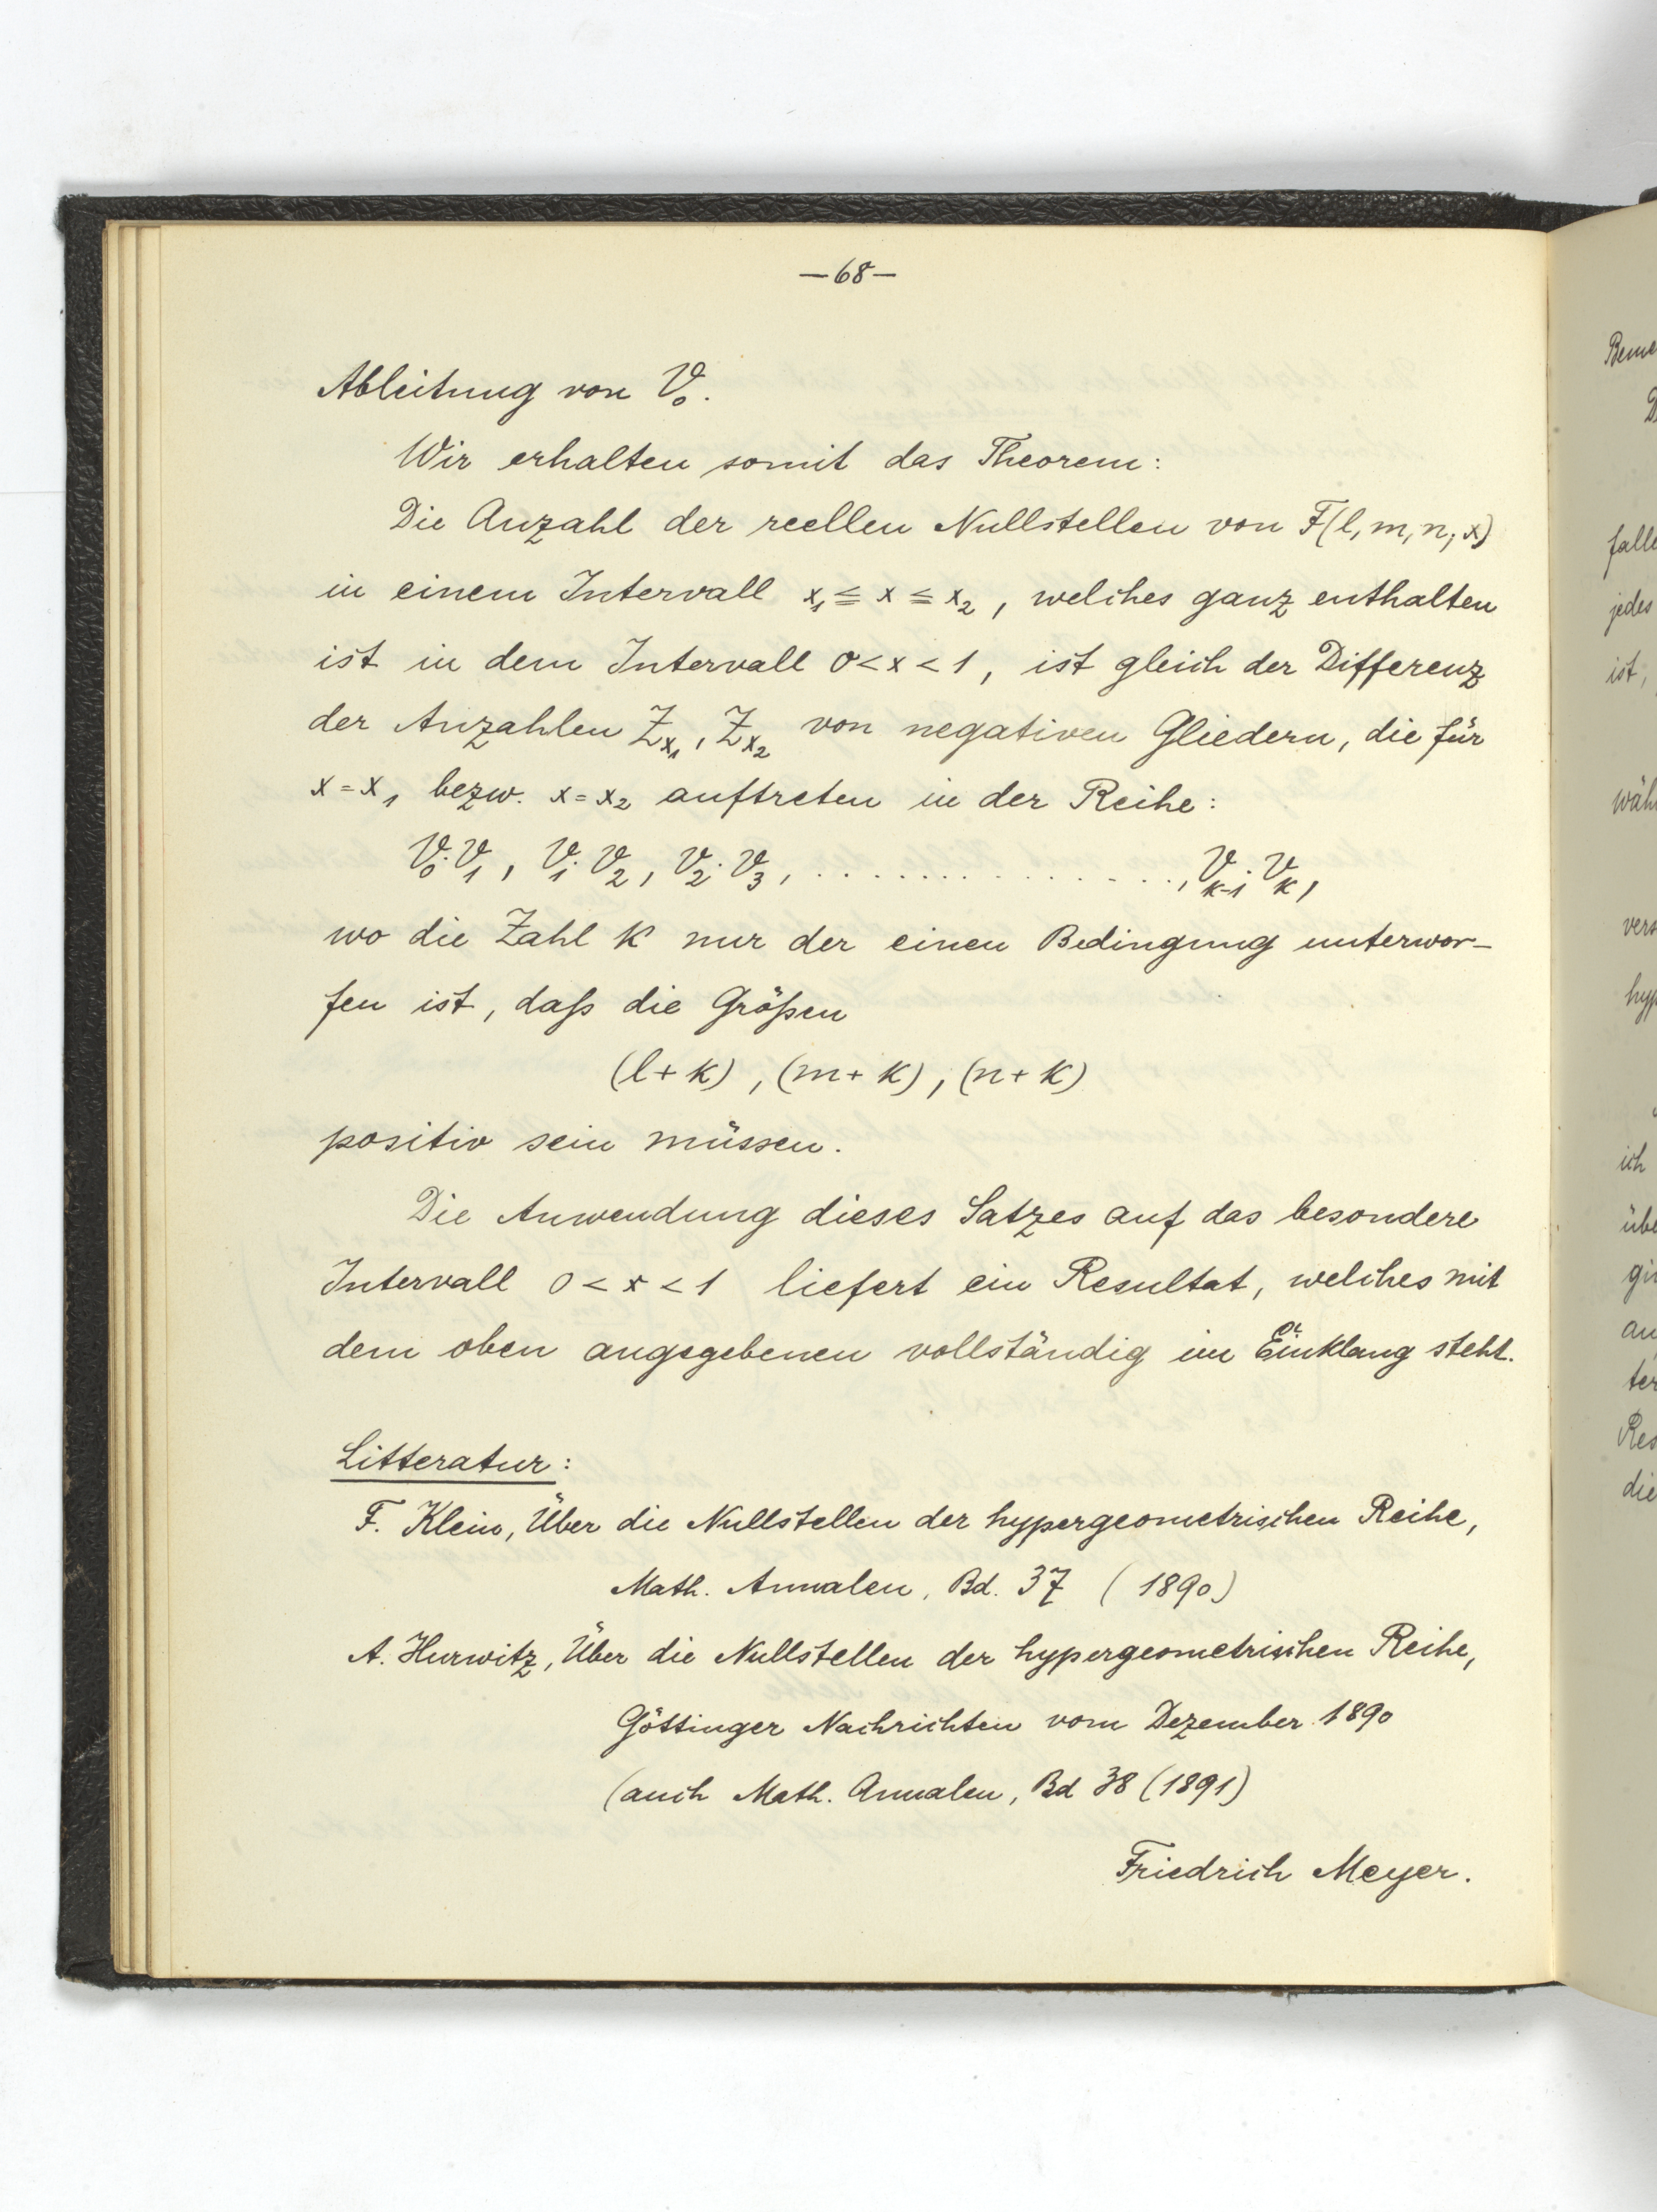 —68—
Ableitung von V₀.
Wir erhalten somit das Theorem:
Die Anzahl der reellen Nullstellen von F(l, m, n; x)
in einem Intervall x₁ ≦ x ≦ x₂, welches ganz enthalten
ist in dem Intervall 0 < x < 1, ist gleich der Differenz
der Anzahlen Z_{x₁}, Z_{x₂} von negativen Gliedern, die für
x = x₁ bezw. x = x₂ auftreten in der Reihe:
V₀·V₁, V₁·V₂, V₂·V₃, . . . . . . . . . . . . . . . . ., V_{k-1}·V_k,
wo die Zahl k nur der einen Bedingung unterwor-
fen ist, daß die Größen
(l + k), (m + k), (n + k)
positiv sein müssen.
Die Anwendung dieses Satzes auf das besondere
Intervall 0 < x < 1 liefert ein Resultat, welches mit
dem oben angegebenen vollständig im Einklang steht.
Litteratur:
F. Klein, Über die Nullstellen der hypergeometrischen Reihe,
Math. Annalen, Bd. 37 (1890)
A. Hurwitz, Über die Nullstellen der hypergeometrischen Reihe,
Göttinger Nachrichten vom Dezember 1890
(auch Math. Annalen, Bd 38 (1891)
Friedrich Meyer.
falle
jedes
ist,
ich
die